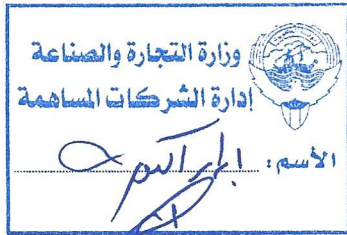 وزارة التجارة والصناعة
إدارة الشركات المساهمة
الأسم :